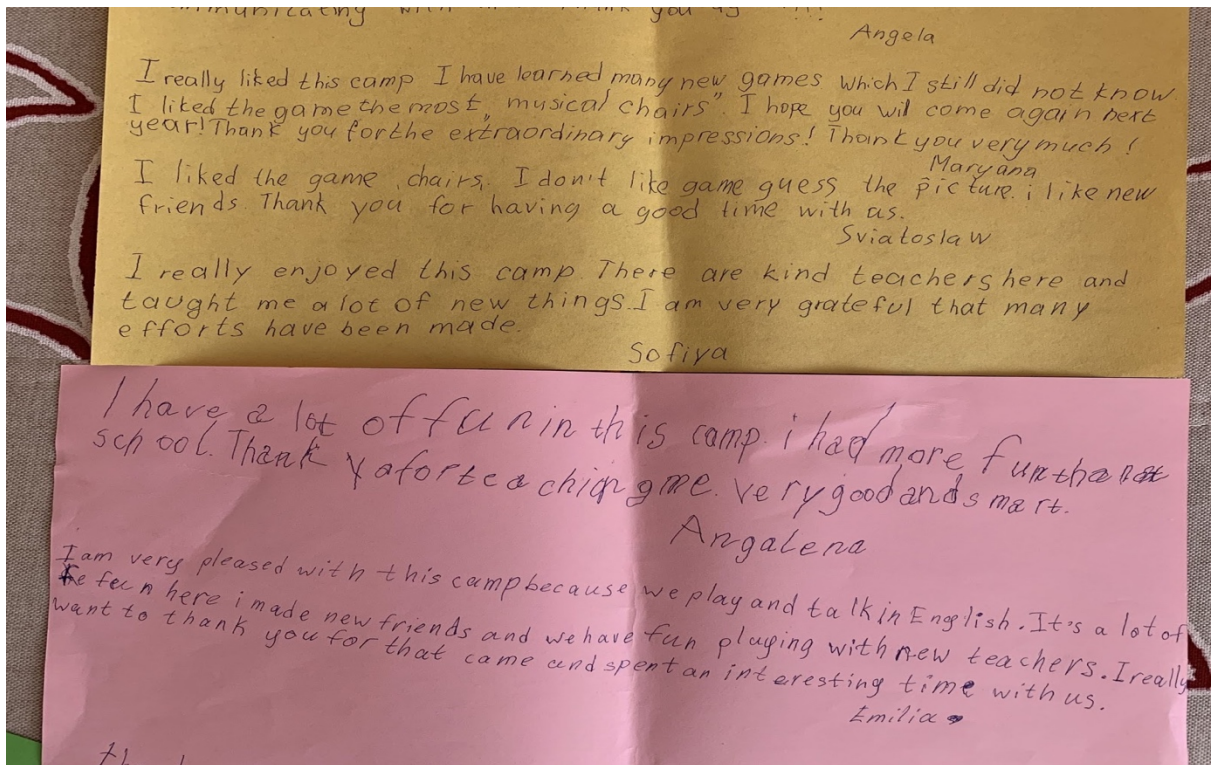 communicating with
you
Angela
I really liked this camp I have learned many new games which I still did not know
I liked the game the most „musical chairs" I hope you will come again next
year! Thank you for the extraordinary impressions! Thank you very much!
Maryana
I liked the game „chairs„. I don't like game guess the picture. i like new
friends. Thank you for having a good time with us.
Sviatoslaw
I really enjoyed this camp. There are kind teachers here and
taught me a lot of new things. I am very grateful that many
efforts have been made.
Sofiya
I have a lot of fun in this camp. i had more fun than at
school. Thank ya for teaching me. very good and smart.
Angalena
I am very pleased with this camp because we play and talk in English. It's a lot of
fun here i made new friends and we have fun playing with new teachers. I really
want to thank you for that came and spent an interesting time with us.
Emilia